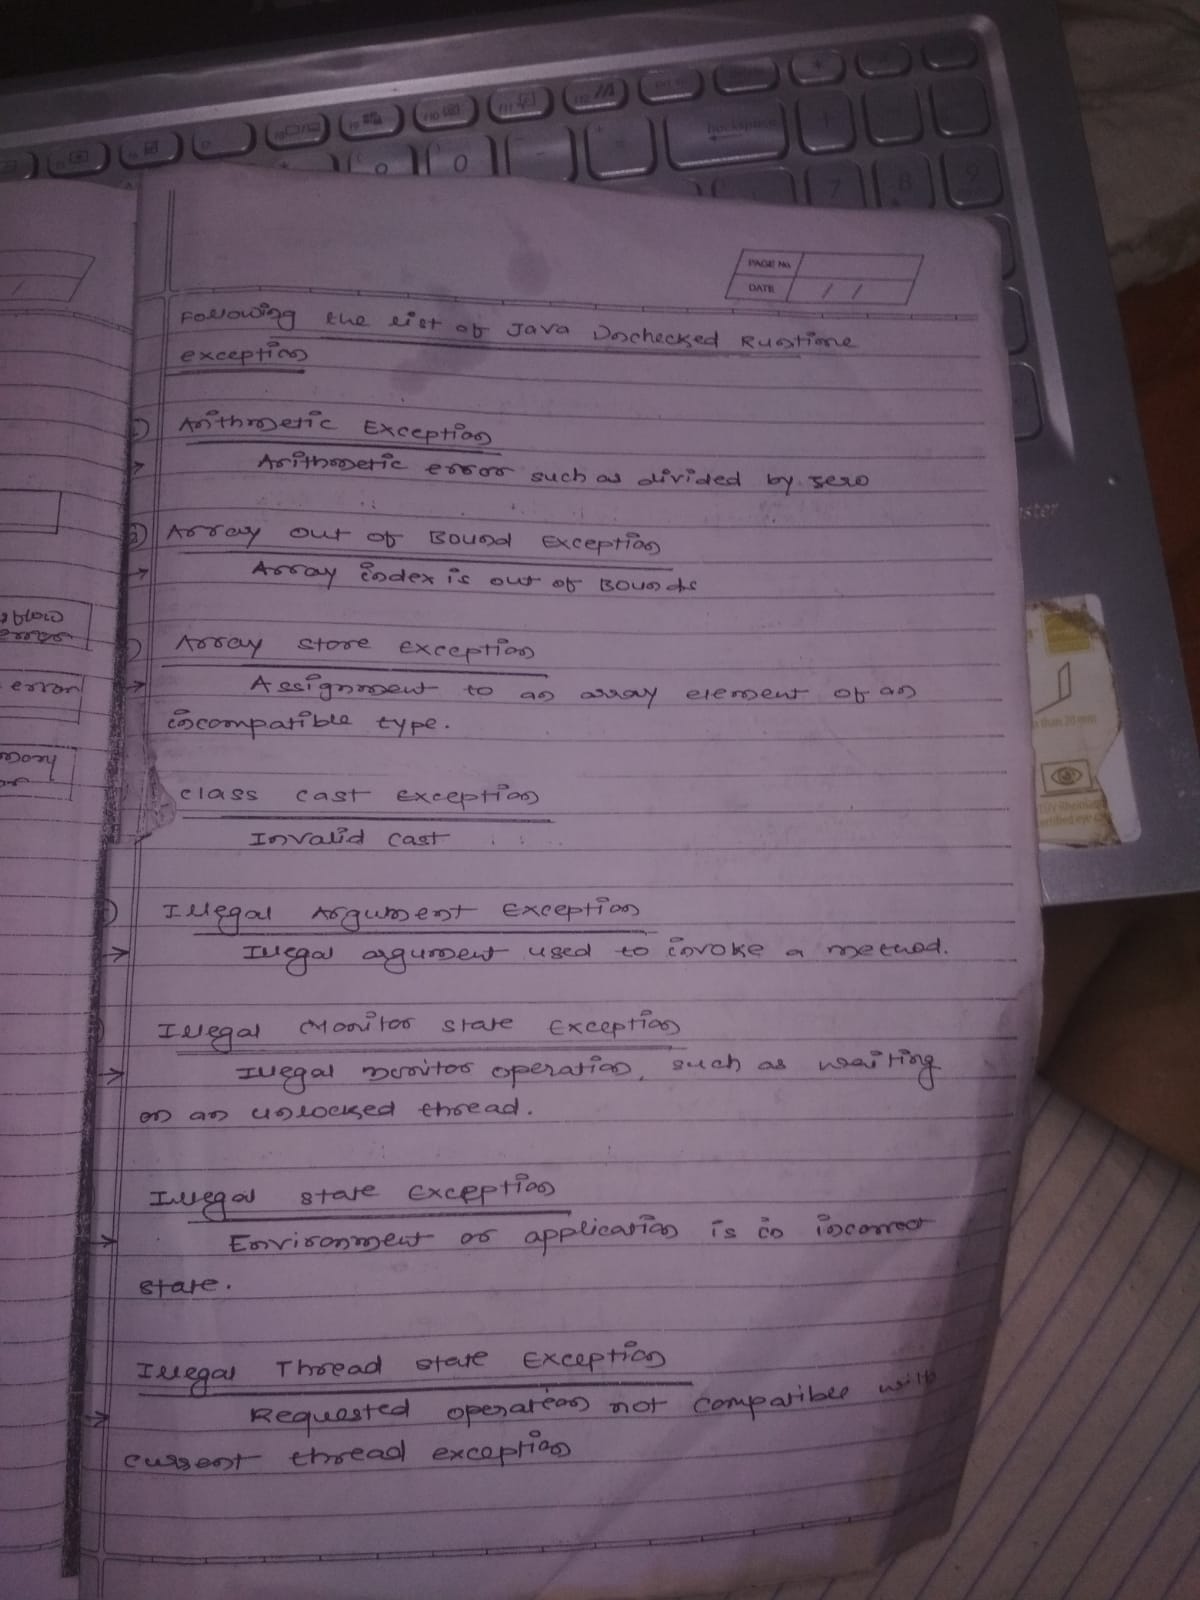 PAGE No.
DATE / /
Following the list of Java Unchecked Runtime
exception
Arithmetic Exception
→ Arithmetic error such as divided by zero
2) Array out of Bound Exception
→ Array index is out of Bounds
Array store exception
→ Assignment to an array element of an
incompatible type.
class cast exception
Invalid cast
Illegal Argument Exception
→ Illegal argument used to invoke a method.
Illegal Monitor state Exception
→ Illegal monitor operation, such as waiting
on an unlocked thread.
Illegal state Exception
→ Environment or application is in incorrect
state.
Illegal Thread state Exception
→ Requested operation not compatible with
current thread exception
error
backspace
7
8
9